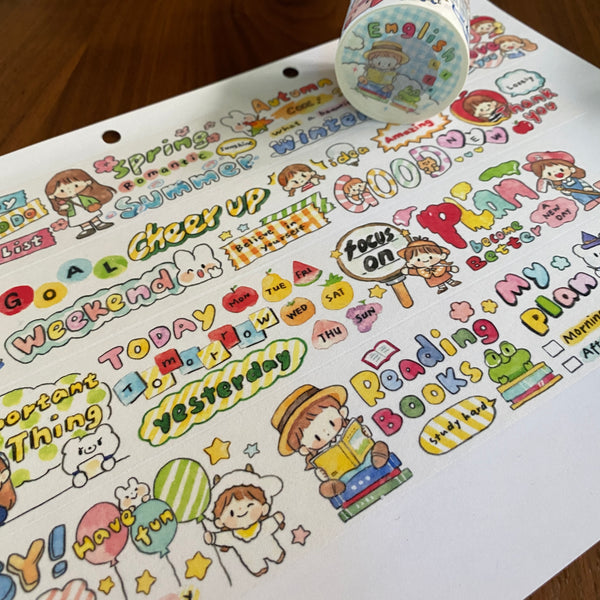 English
Love
Autumn
Lovely
Thank
you
Spring
Romantic
Sunshine
COOL
what a
Winter
Amazing
Summer
idea
GOOD NEW
List
Cheer up
Believe in
Yourself
Plan
become
Better
NEW
DAY
focus
on
GOAL
Weekend
MON TUE FRI
WED SAT
THU SUN
TODAY
Tomorrow
yesterday
My
Plan
Morning
Reading
Books
study hard
Thing
Have
fun